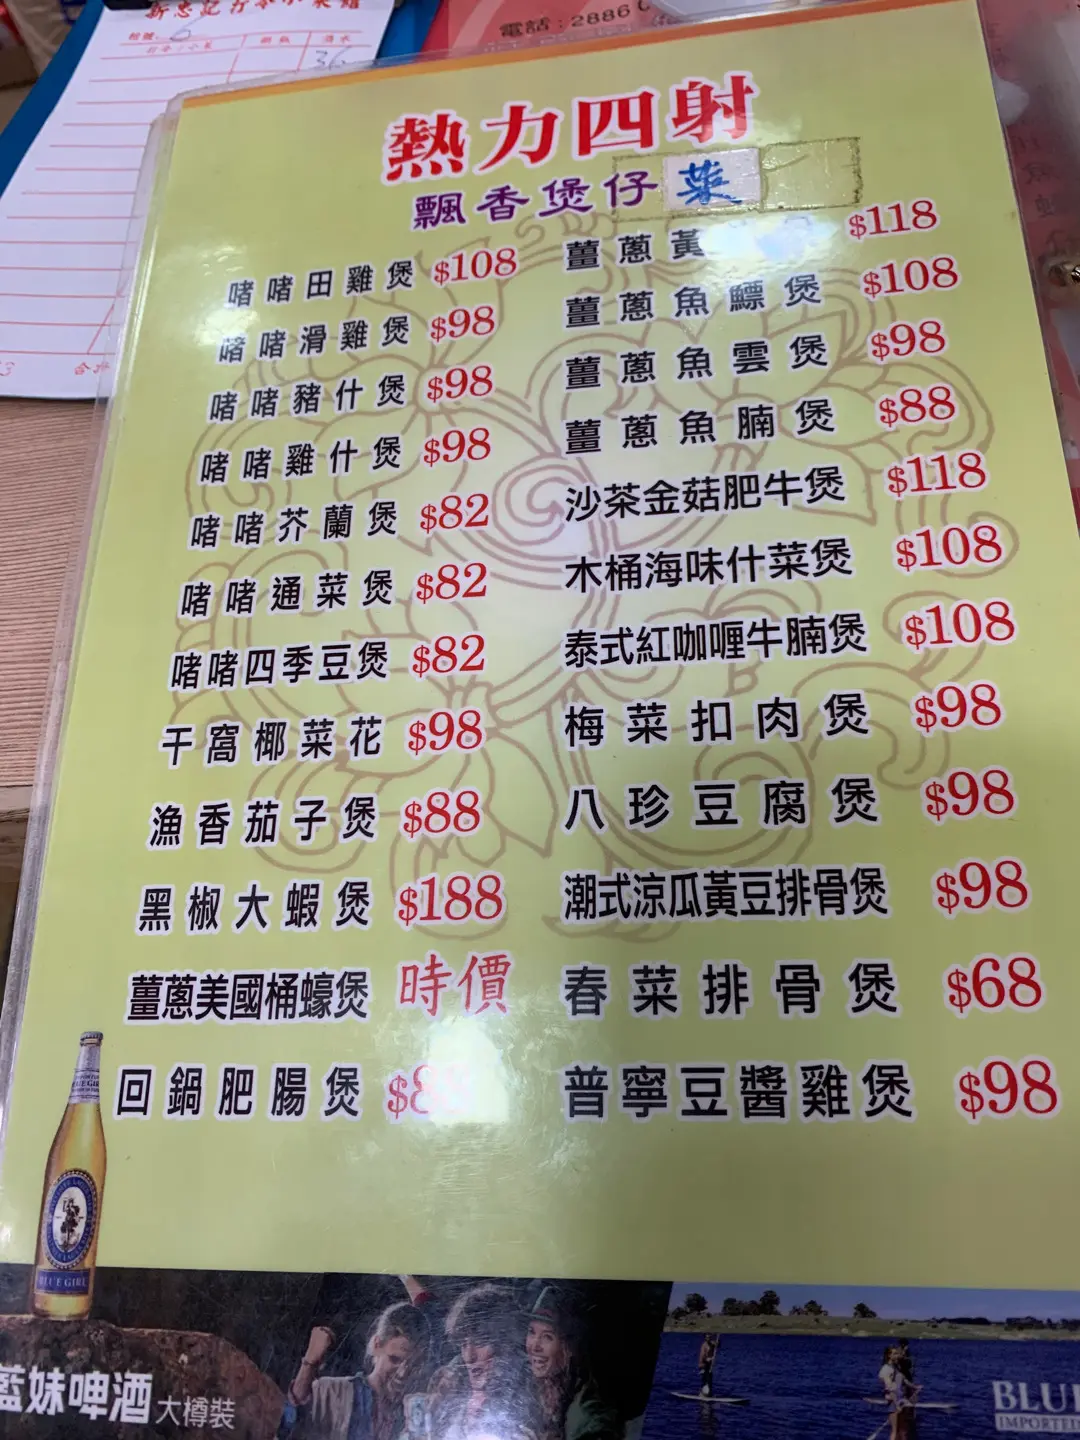 新忠記打冷小菜館
電話：2886
枱號: 6
打冷/小菜
酒水
36
熱力四射
飄香煲仔菜
啫啫田雞煲 $108
啫啫滑雞煲 $98
啫啫豬什煲 $98
啫啫雞什煲 $98
啫啫芥蘭煲 $82
啫啫通菜煲 $82
啫啫四季豆煲 $82
干窩椰菜花 $98
漁香茄子煲 $88
黑椒大蝦煲 $188
薑蔥美國桶蠔煲 時價
回鍋肥腸煲 $8
薑蔥黃 $118
薑蔥魚鰾煲 $108
薑蔥魚雲煲 $98
薑蔥魚腩煲 $88
沙茶金菇肥牛煲 $118
木桶海味什菜煲 $108
泰式紅咖喱牛腩煲 $108
梅菜扣肉煲 $98
八珍豆腐煲 $98
潮式涼瓜黃豆排骨煲 $98
春菜排骨煲 $68
普寧豆醬雞煲 $98
BLUE GIRL
藍妹啤酒 大樽裝
BLU
IMPORTED